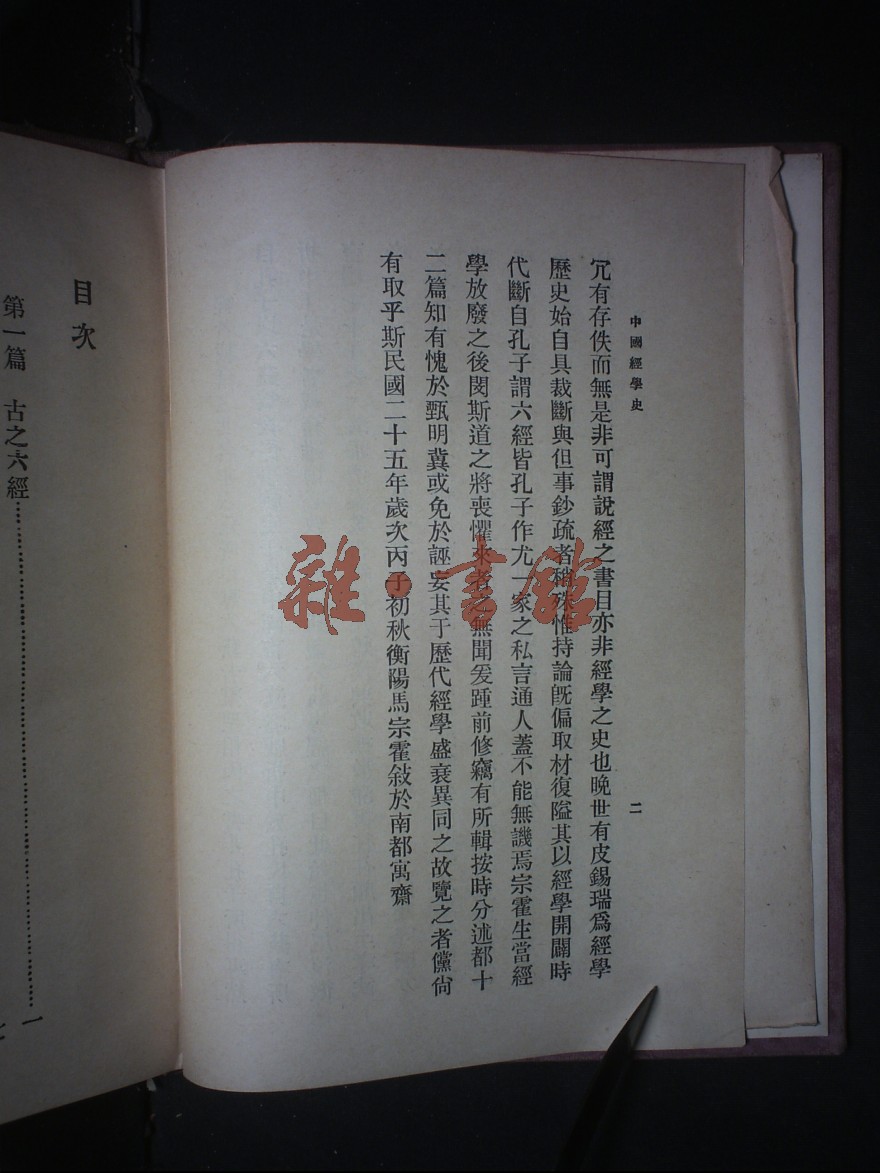 中國經學史
二
冗有存佚而無是非可謂說經之書目亦非經學之史也晚世有皮錫瑞爲經學
歷史始自具裁斷與但事鈔疏者稍殊惟持論旣偏取材復隘其以經學開闢時
代斷自孔子謂六經皆孔子作尤一家之私言通人蓋不能無譏焉宗霍生當經
學放廢之後閔斯道之將喪懼來者之無聞爰踵前修竊有所輯按時分述都十
二篇知有愧於甄明冀或免於誣妄其于歷代經學盛衰異同之故覽之者儻尙
有取乎斯民國二十五年歲次丙子初秋衡陽馬宗霍敍於南都寓齋
目次
第一篇 古之六經……………………………………一
雜·書館